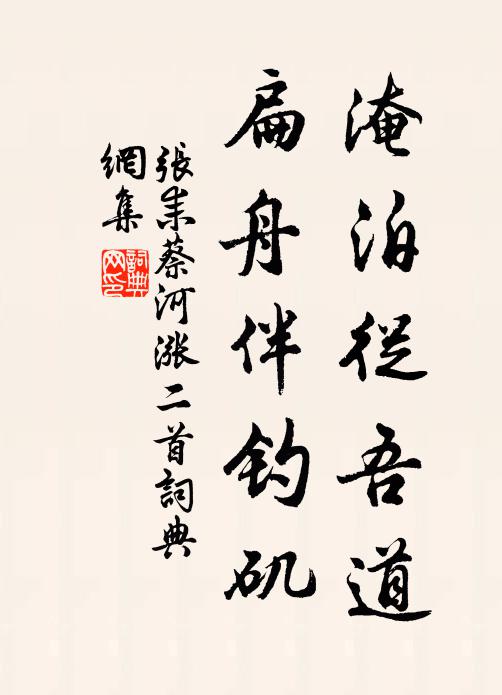 淹泊從吾道
扁舟伴钓矶
張耒蔡河漲二首詞典
網集
詞典
网印